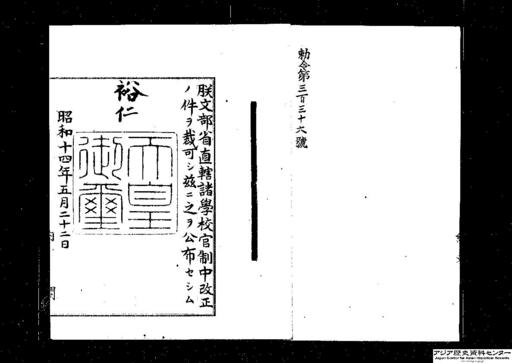 勅令第三百三十六號
朕文部省直轄諸學校官制中改正
ノ件ヲ裁可シ茲ニ之ヲ公布セシム
裕仁
天皇
御璽
昭和十四年五月二十二日
内閣
アジア歴史資料センター
Japan Center for Asian Historical Records